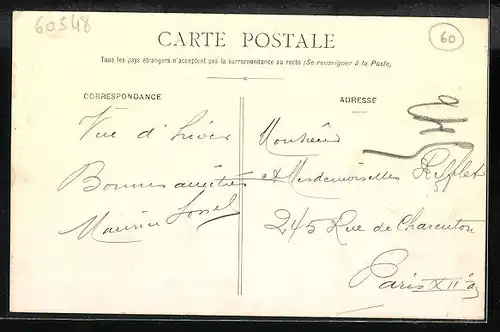 60548
60
CARTE POSTALE
Tous les pays étrangers n'acceptent pas la correspondance au recto (Se renseigner à la Poste)
CORRESPONDANCE
ADRESSE
Vue d'hiver
Bonnes amitiés
Maurice
Monsieur
et Mesdemoiselles
245 Rue de Charenton
Paris XIIe